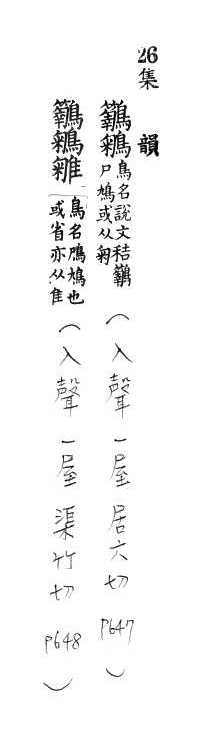 26集 韻
鳥名說文秸
尸鳩或从匊
(入聲一屋居六切 P647)
鳥名鳲鳩也
或省亦从隹
(入聲一屋渠竹切 P648)